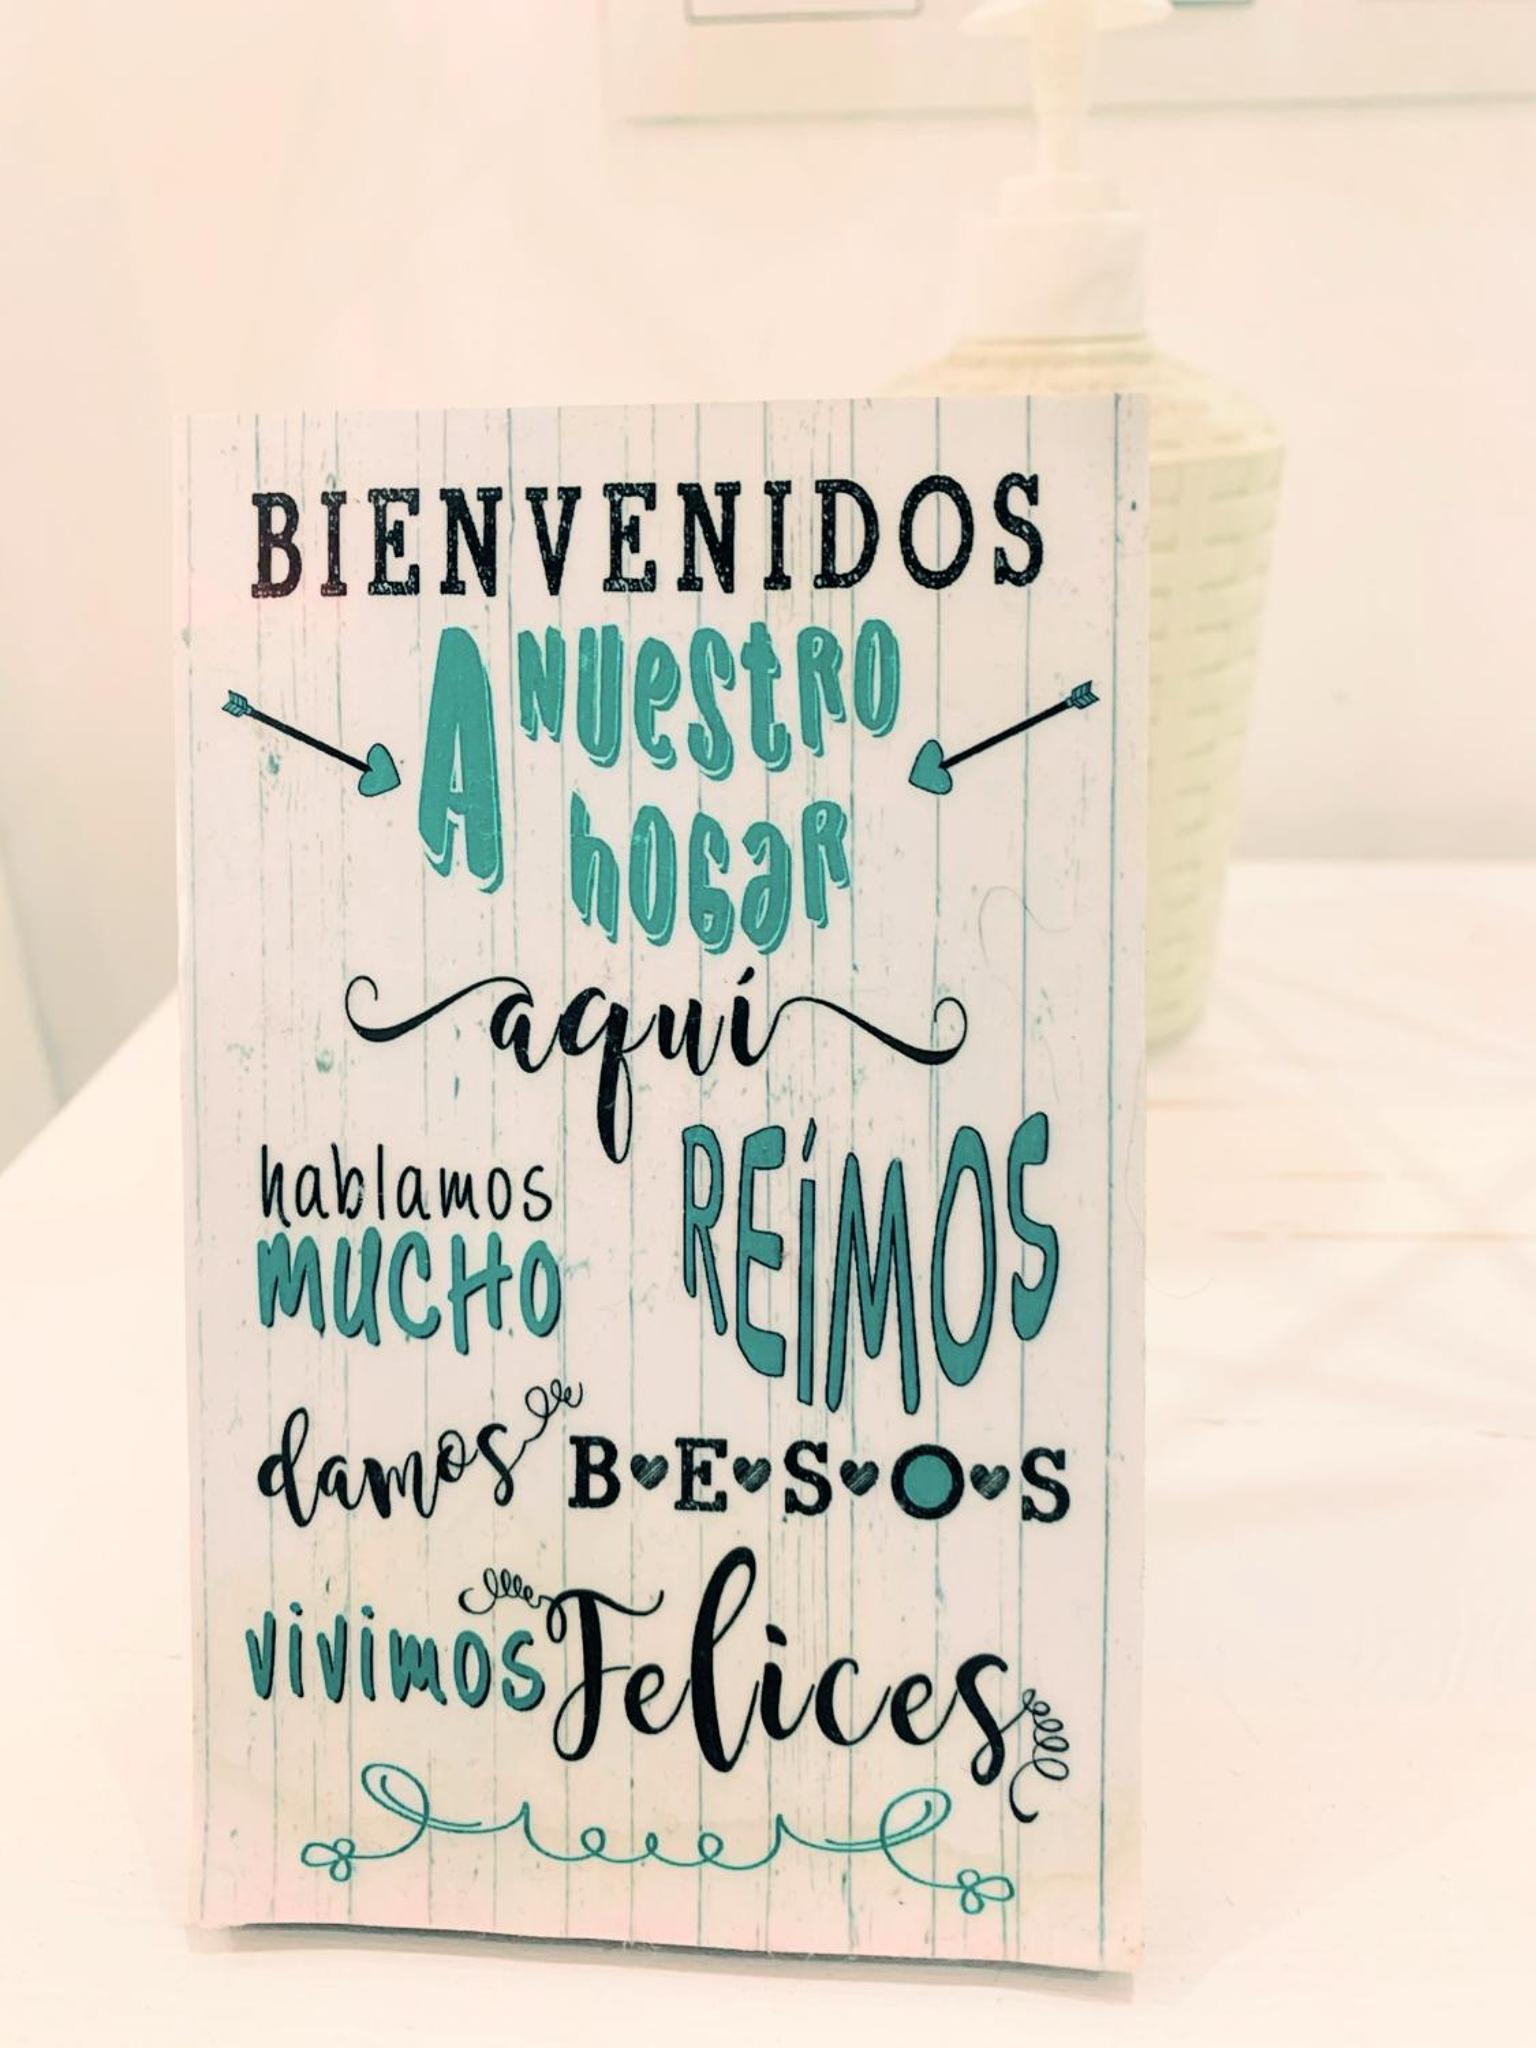 BIENVENIDOS
A NUeStRO
hOGaR
aquí
hablamos
MUCHO
REíMOS
damos B♥E♥S♥O♥S
vivimos Felices